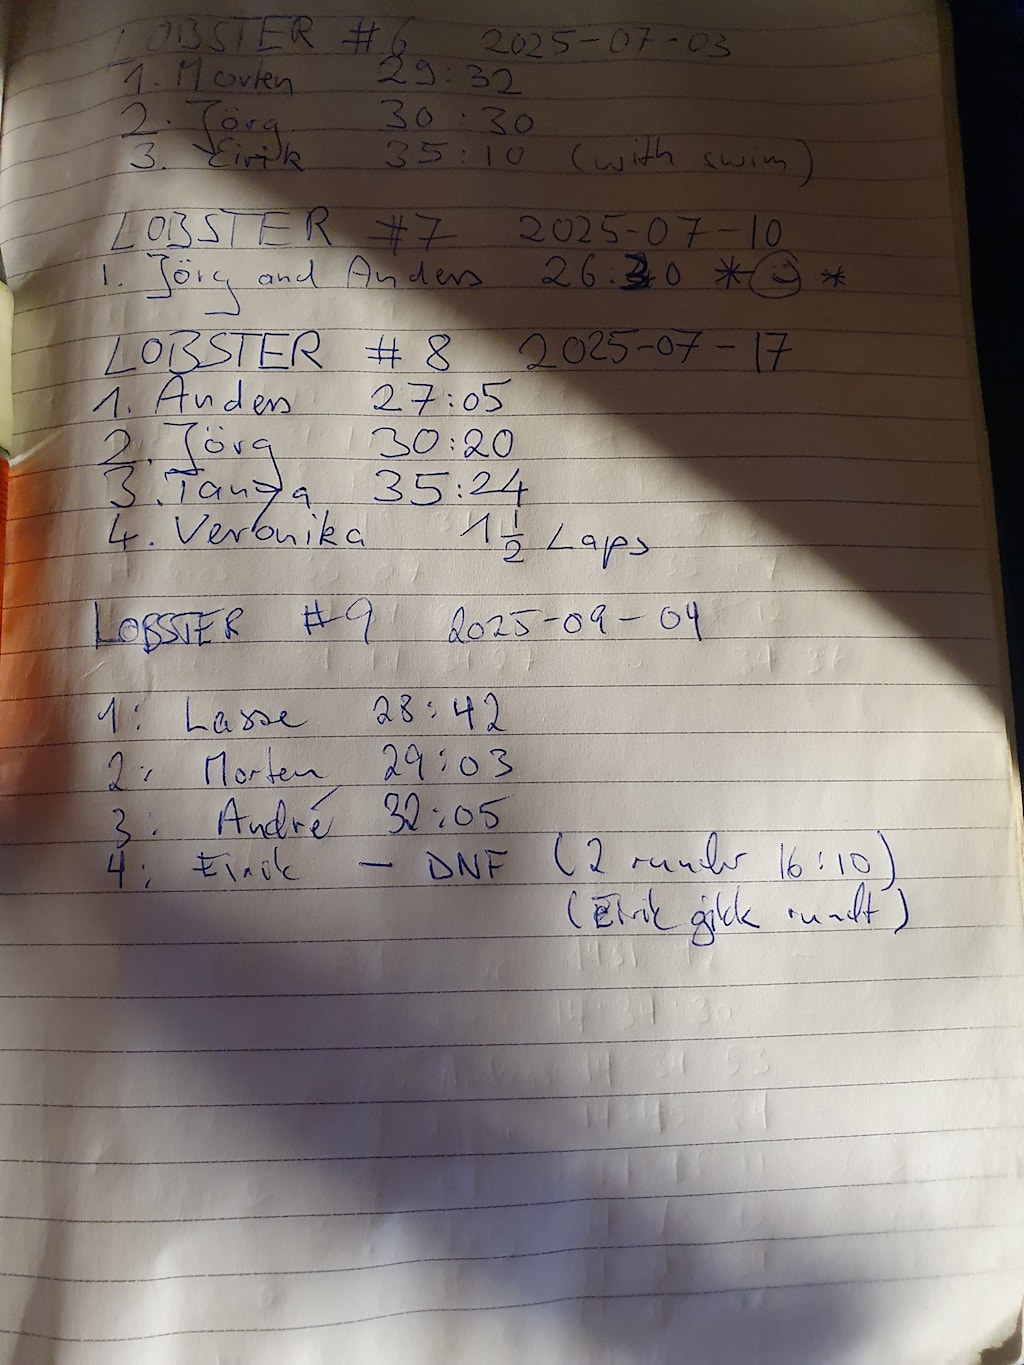 LOBSTER #6 2025-07-03
1. Morten 29:32
2. Jörg 30:30
3. Eirik 35:10 (with swim)
LOBSTER #7 2025-07-10
1. Jörg and Anders 26:30 * ☺ *
LOBSTER #8 2025-07-17
1. Anders 27:05
2. Jörg 30:20
3. Tanja 35:24
4. Veronika 1 1/2 Laps
LOBSTER #9 2025-09-04
1: Lasse 28:42
2: Morten 29:03
3: André 32:05
4: Eirik - DNF (2 runder 16:10)
(Eirik gikk rundt)